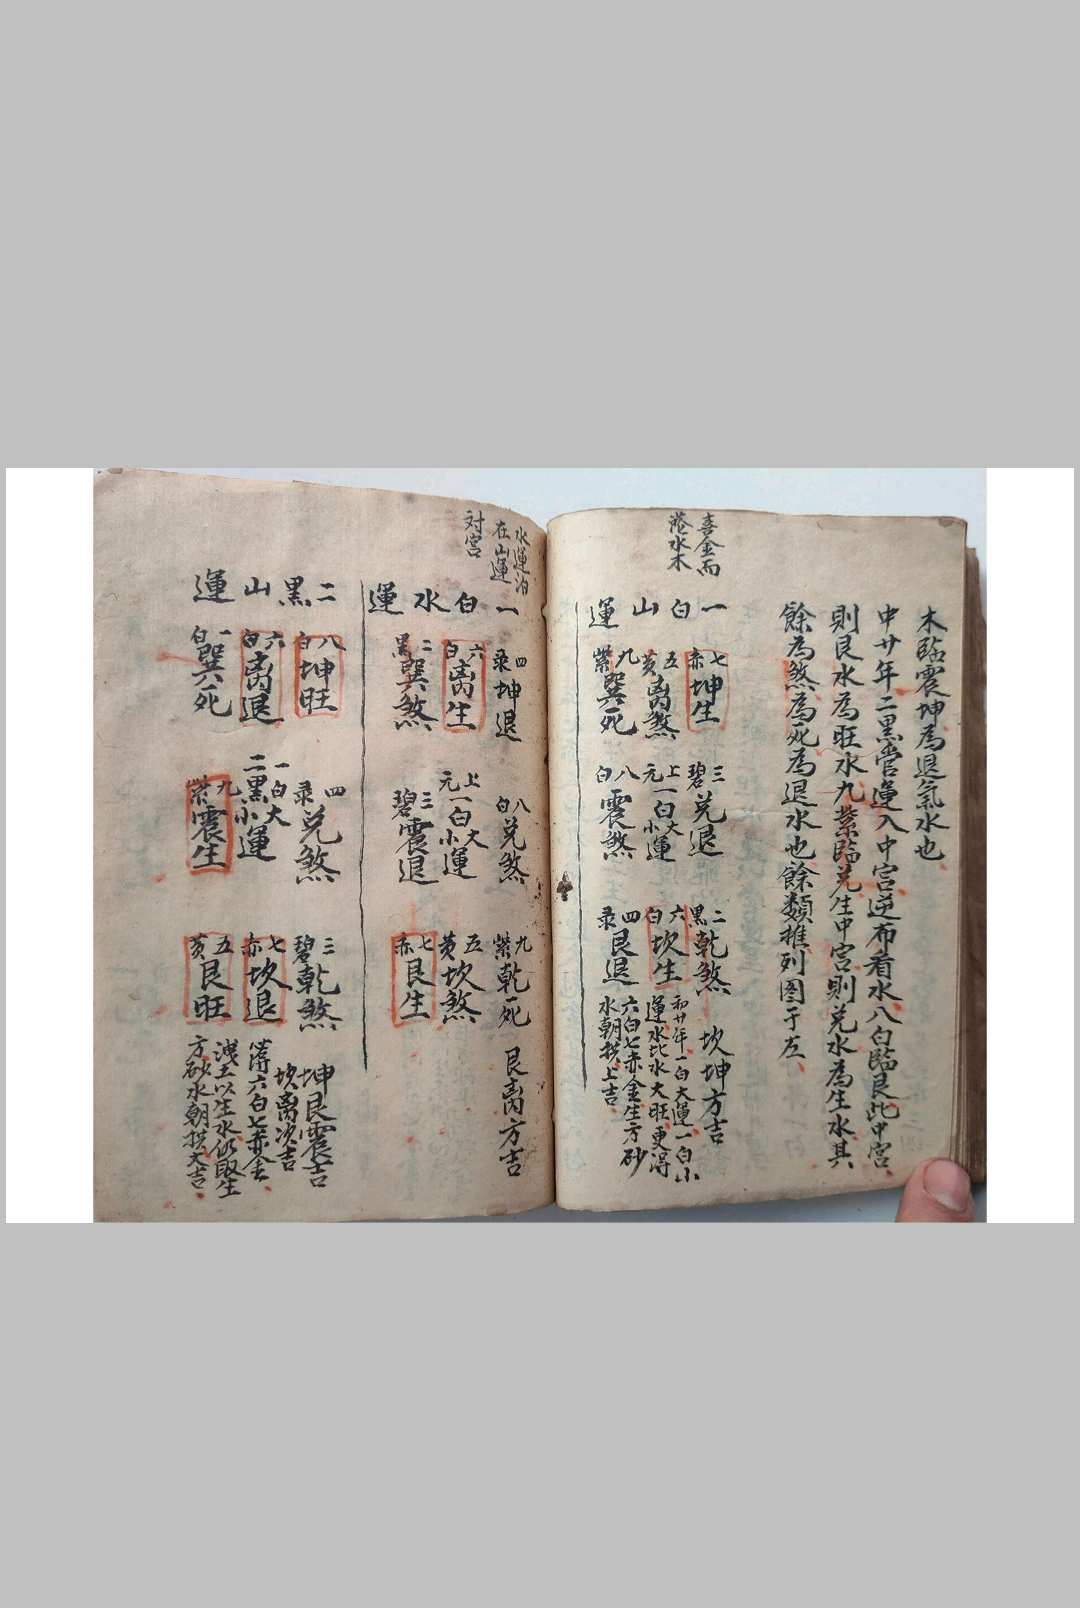 木臨震坤為退氣水也
中廿年二黑當運入中宮逆布看水八白臨艮比中宮
則艮水為旺水九紫臨兑生中宮則兑水為生水其
餘為煞為死為退水也餘類推列圖于左
喜金而
水木
一白山運
七赤坤生
三碧兑退
二黑乾煞
坎坤方吉
五黄离煞
上元一白大小運
六白坎生
和廿年一白大運一白小
運水比水大旺更得
九紫巽死
八白震煞
四录艮退
六白七赤金生方砂
水朝拱上吉
水運泊
在山運
対宮
一白水運
四录坤退
八白兑煞
九紫乾死
艮离方吉
六白离生
上元一白大小運
五黄坎煞
二黑巽煞
三碧震退
七赤艮生
二黑山運
八白坤旺
四录兑煞
三碧乾煞
坤艮震吉
坎离次吉
六白离退
一白大
二黑小運
七赤坎退
得六白七赤金
洩土以生水仍取生
一白巽死
九紫震生
五黄艮旺
方砂水朝拱大吉